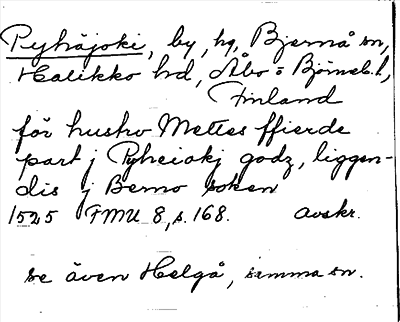 Pyhäjoki, by, hg, Bjernå sn,
Halikko hd, Åbo o Björneb. l,
Finland
för hustrv Mettes ffierde
part j Pyheiokj godz, liggen-
dis j Berno soken
1525 FMU 8, s. 168. Avskr.
se även Helgå, samma sn.